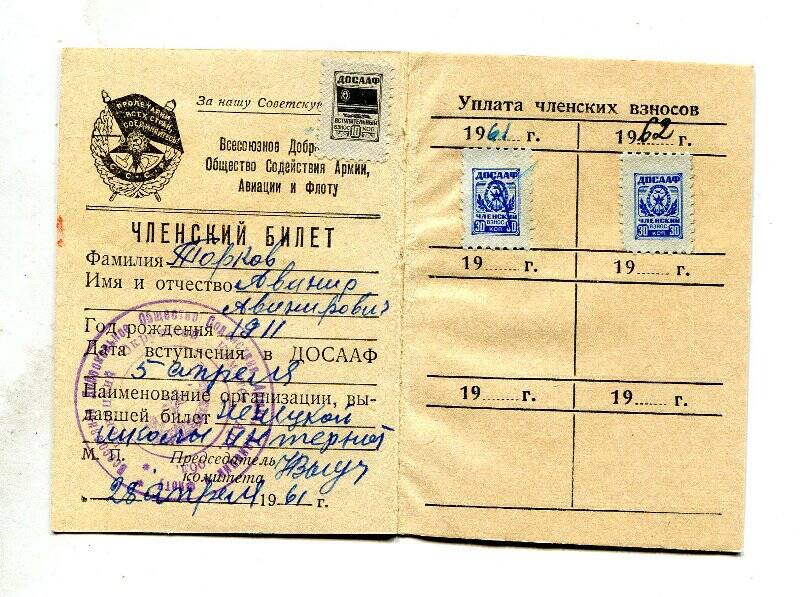 ПРОЛЕТАРИИ
ВСЕХ СТРАН
СОЕДИНЯЙТЕСЬ
СССР
За нашу Советскую
Всесоюзное Добр
Общество Содействия Армии,
Авиации и Флоту
ДОСААФ
ВСТУПИТЕЛЬНЫЙ
ВЗНОС 10 КОП
ЧЛЕНСКИЙ БИЛЕТ
Фамилия Торков
Имя и отчество Авинир
Авинирович
Год рождения 1911
Дата вступления в ДОСААФ
5 апреля
Наименование организации, вы-
давшей билет
школы интернат
М. П. Председатель
комитета
28 апреля 1961 г.
Уплата членских взносов
1961 г. 1962 г.
ДОСААФ
ЧЛЕНСКИЙ
30 ВЗНОС 30
КОП
ДОСААФ
ЧЛЕНСКИЙ
30 ВЗНОС 30
КОП
19...... г. 19...... г.
19...... г. 19...... г.